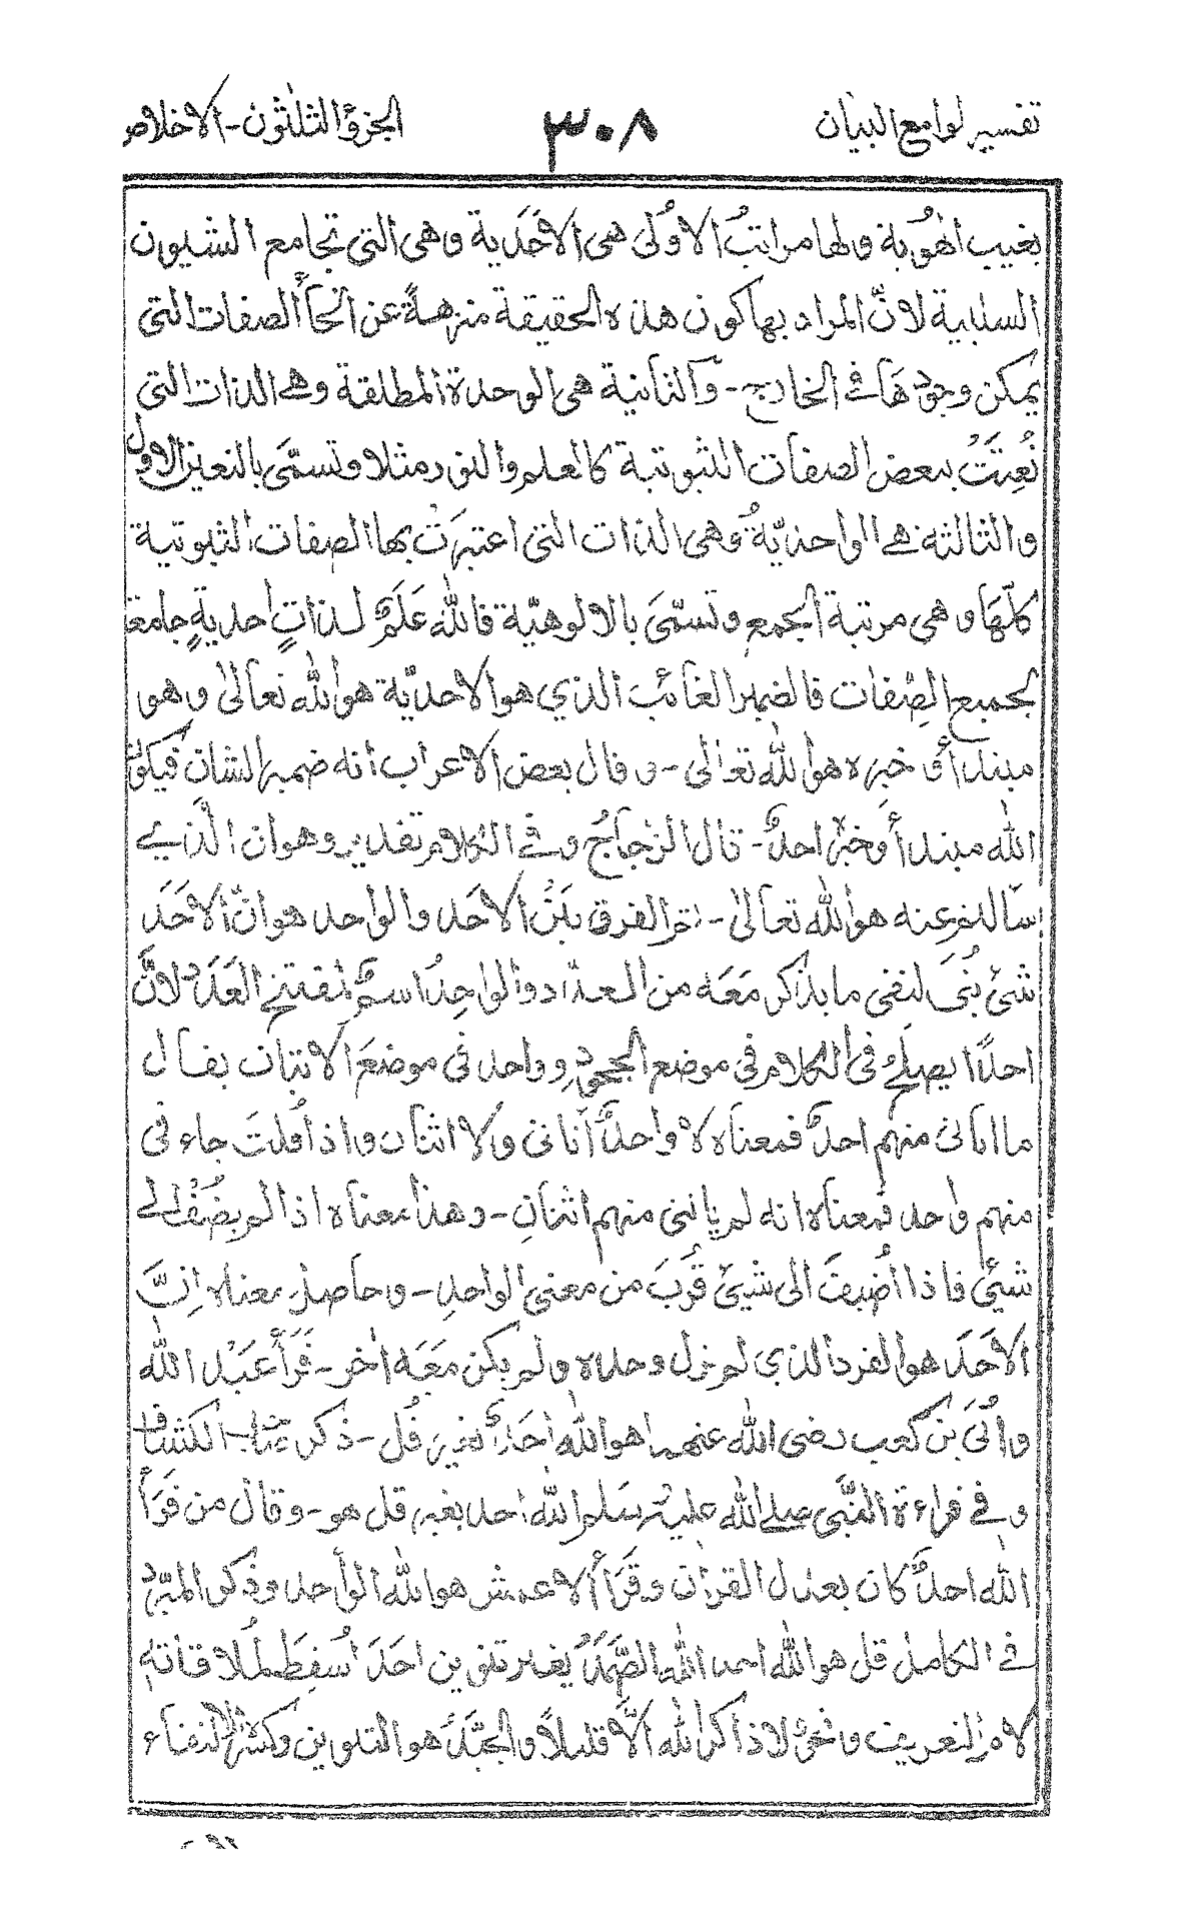 تفسير لوامع البيان ٣٠٨ الجزؤ الثلثون - الاخلاص
بغيب الهُويّة ولها مراتبُ الاُولىٰ هى الاَحَدية وهى التى تجامع الشيون
السلبية لانّ المراد بها كون هذه الحقيقة منزهةً عن انحآء الصفات التى
يمكن وجودُها فى الخارج - والثانية هى الوحدة المطلقة وهى الذات التى
نُعِتَتْ ببعض الصفات الثبوتية كالعلم والنور مثلا وتسمّىٰ بالتعين الاول
والثالثة هى الواحديّةُ وهى الذات التى اعتبرَت بها الصفات الثبوتية
كلّها وهى مرتبة الجمع وتسمّىٰ بالالوهيّة فالله عَلَمٌ لذاتٍ احديةٍ جامعة
لجميع الصِّفات فالضمير الغائب الذي هو الاحديّة هو الله تعالىٰ وهو
مبتدأ وخبره هو الله تعالى - و قال بعض الاعراب انه ضمير الشان فيكون
الله مبتدأ وخبره احدٌ - قال الزجاجُ وفى الكلام تقدير وهو ان الذي
سالتم عنه هو الله تعالىٰ - ثم الفرق بَيْنَ الاَحَد والواحد هو انّ الاَحَدَ
شئ بُنىَ لنفى ما يذكر مَعَه من العدد والواحِدُ اسمٌ لمفتتح العَدَد لانَّ
احدًا يصلحُ فى الكلام فى موضع الجحود وواحد فى موضعَ الاثبات يقال
ما اتانى منهم احدٌ فمعناه لا واحدٌ أتانى ولا اثنان واذا قلتَ جاءنى
منهم واحد فمعناه انه لم يأتنى منهم اثنانِ - وهذا معناه اذا لم يضَفْ الى
شئٍ فاذا أُضيفَ الى شئٍ قَرُبَ من معنى الواحدِ - وحاصل معناه اِنَّ
الاَحَدَ هو الفرد الذى لم يزل وحده ولم يكن مَعَه اٰخر - قَرَأَ عَبْد الله
واُبَىّ بن كعب رضى الله عنهما هو الله احَدٌ بغير قُل - ذكره صاحب الكشاف
وفى قراءة النَّبى صلے الله عليه وسلم الله احد بغير قل هو - وقال من قَرَأَ
الله احدٌ كان بعدل القرٰان وقَرَأَ الاعمش هو الله الواحد وذكر المبرّدُ
فى الكامل قل هو الله احد اللهُ الصَّمَدُ بغير تنوين احَدَ اُسقِطَ لملاقاته
لام التعريف ونحوُ لا ذاكرَ الله الَّا قليلاً والجيّدُ هو التنوين وكسْر لالتقاء